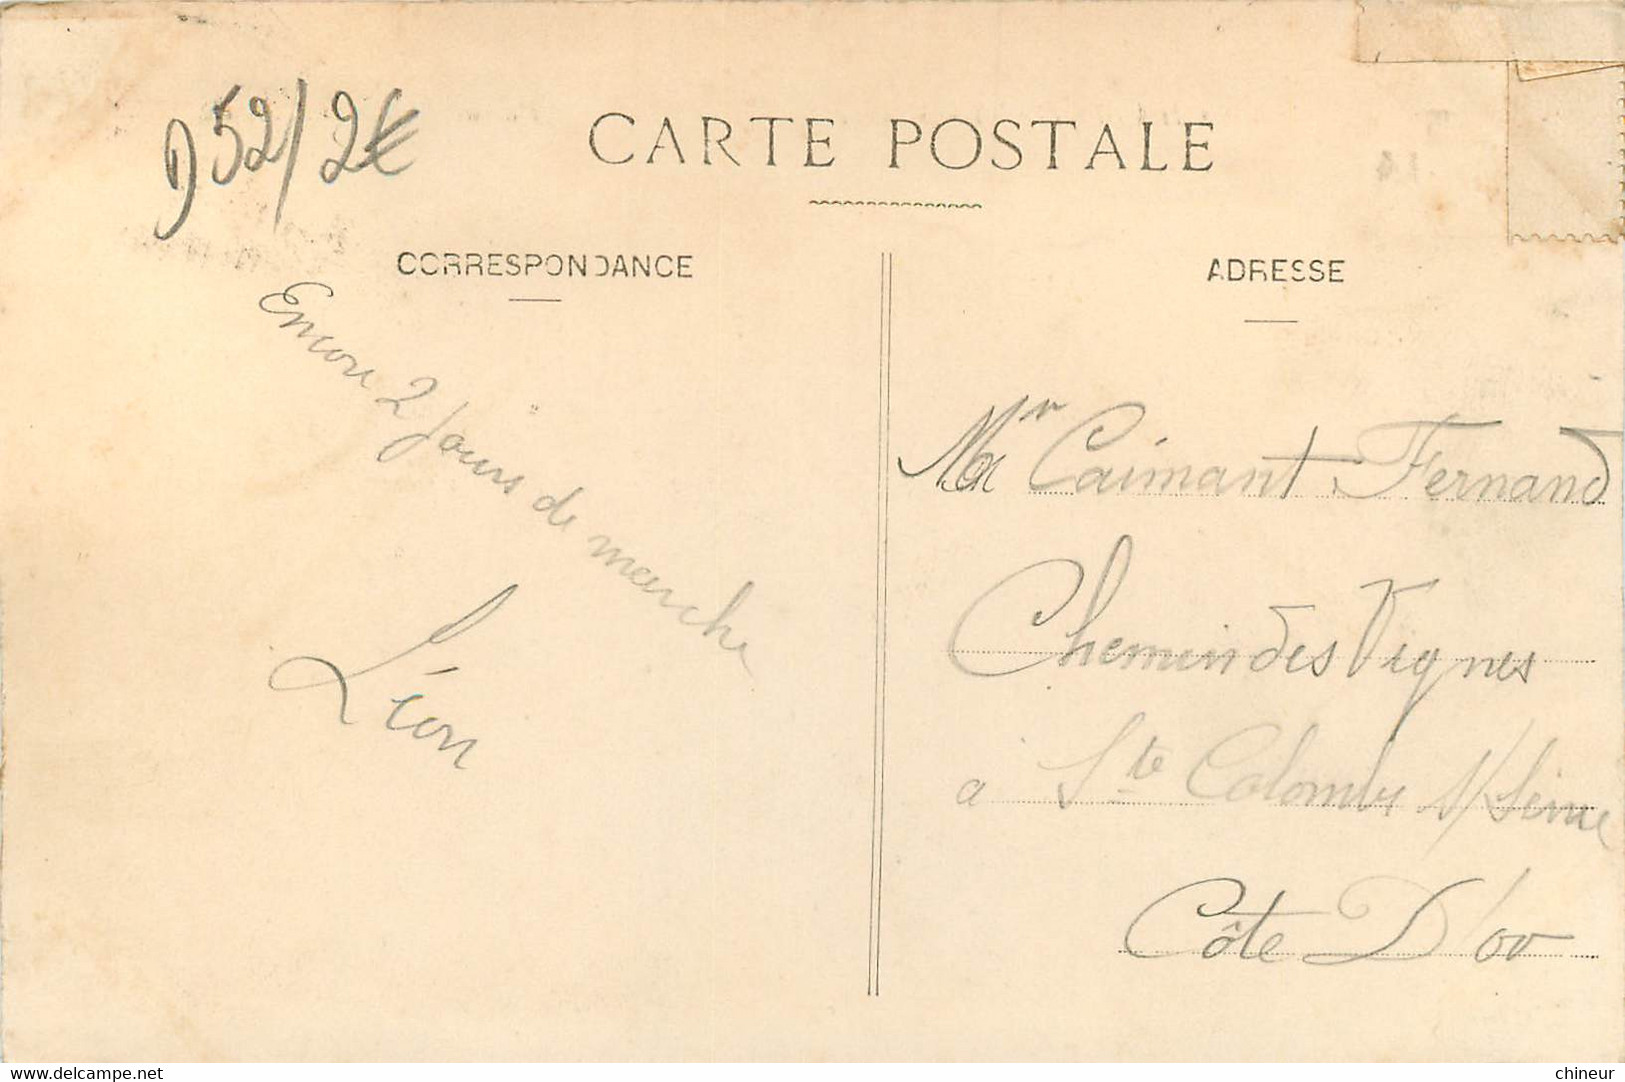 D52/2€
CARTE POSTALE
CORRESPONDANCE
Encore 2 jours de marche
Léon
ADRESSE
Mr Caimant Fernand
Chemin des Vignes
a Ste Colombe s/Seine
Côte D'or
www.delcampe.net
chineur